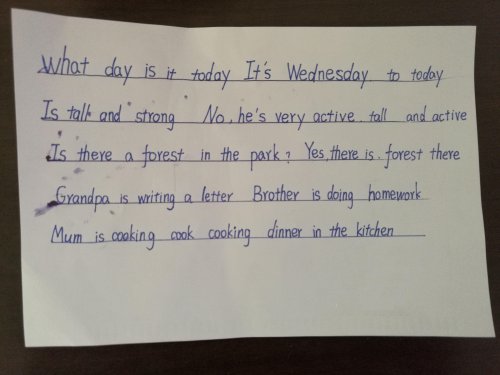 What day is it today It's Wednesday to today
Is tall and strong No, he's very active tall and active
Is there a forest in the park? Yes, there is. forest there
Grandpa is writing a letter Brother is doing homework
Mum is cooking cook cooking dinner in the kitchen